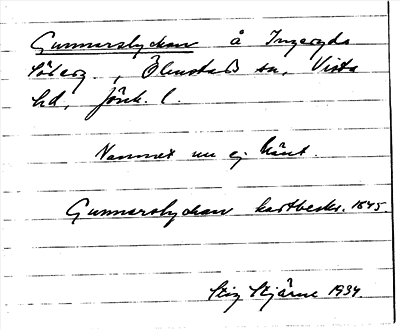 Gunnarslyckan å Ingeryds
Söderg., Ölmstads sn, Vista
hd, Jönk. l.
Namnet nu ej känt.
Gunnarslyckan kartbeskr. 1845.
Stig Stjärne 1934.